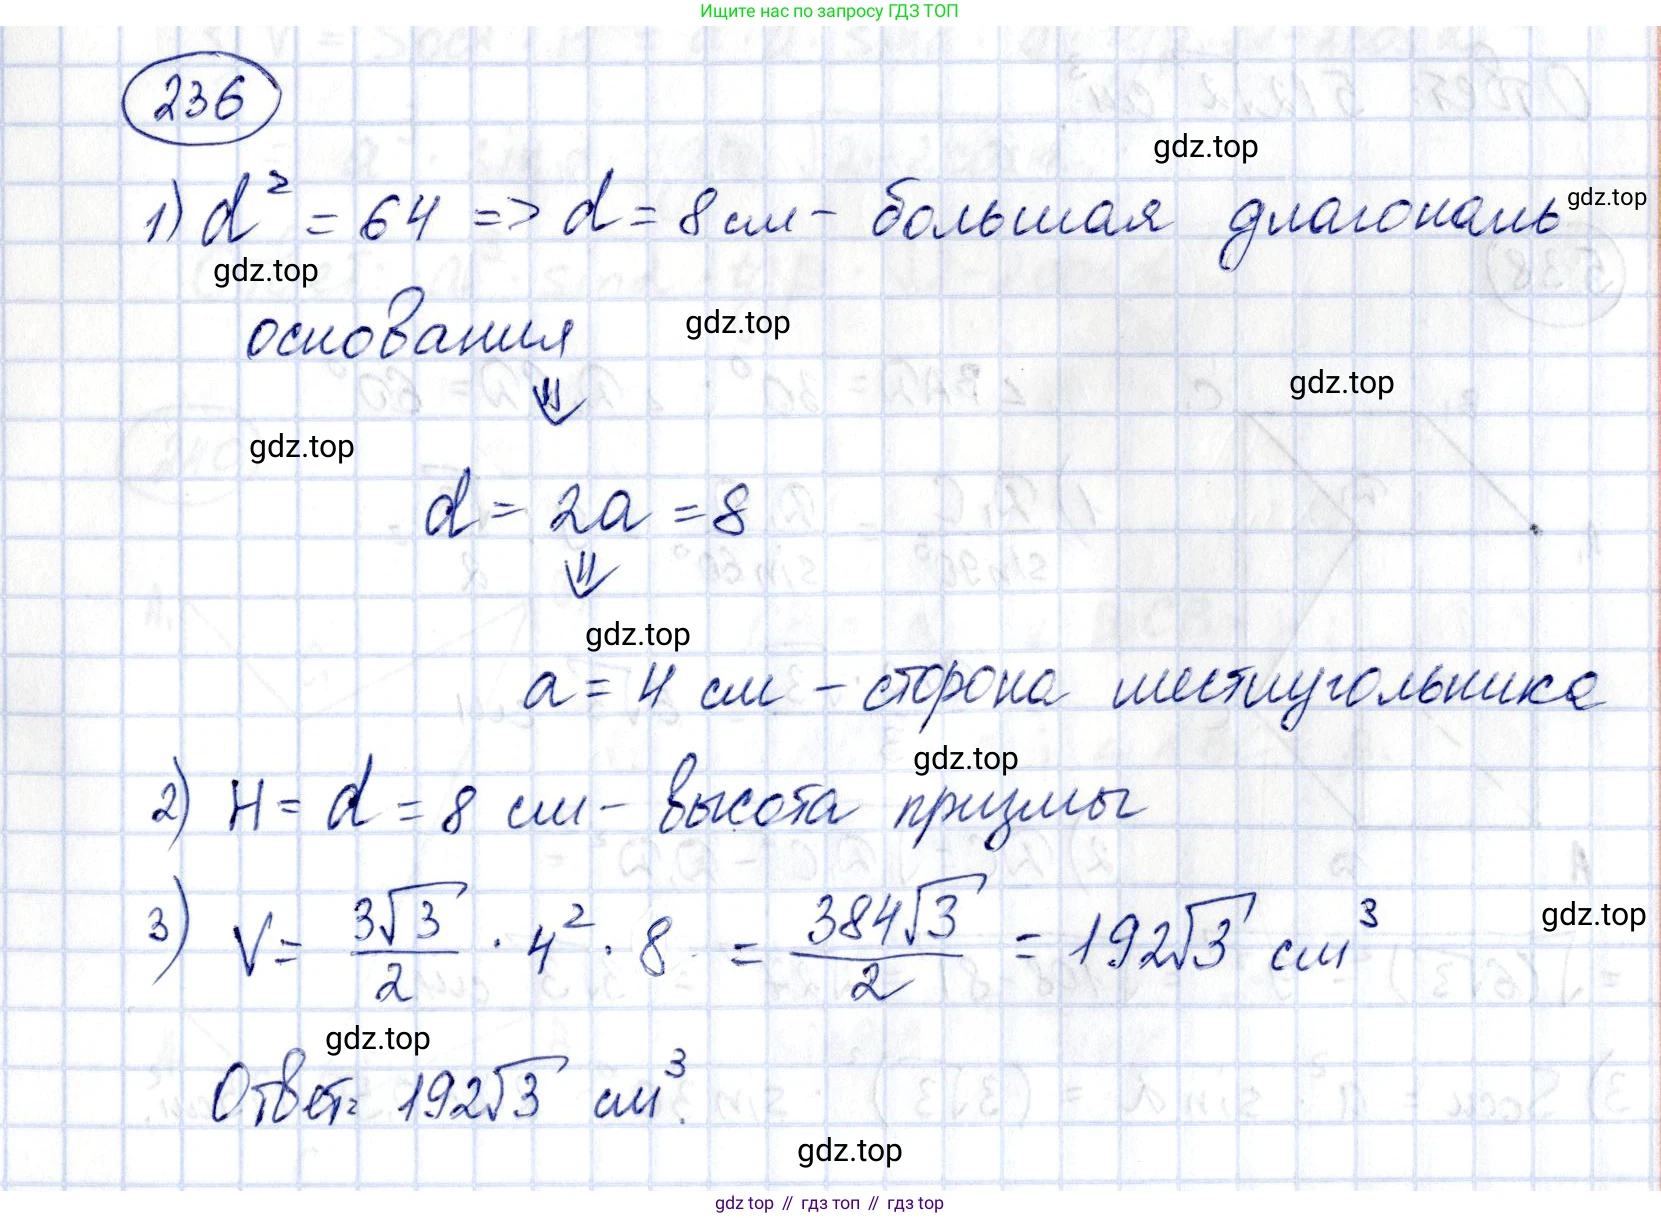 Ищите нас по запросу ГДЗ ТОП
236
gdz.top
1) d² = 64 => d = 8 см - большая диагональ
gdz.top
gdz.top
основания
gdz.top
⇓
gdz.top
gdz.top
d = 2a = 8
⇓
gdz.top
a = 4 см - сторона шестиугольника
gdz.top
2) H = d = 8 см - высота призмы
3) V = 3√3/2 · 4² · 8 = 384√3/2 = 192√3 см³
gdz.top
gdz.top
Ответ: 192√3 см³.
gdz.top
gdz.top // гдз топ // gdz top